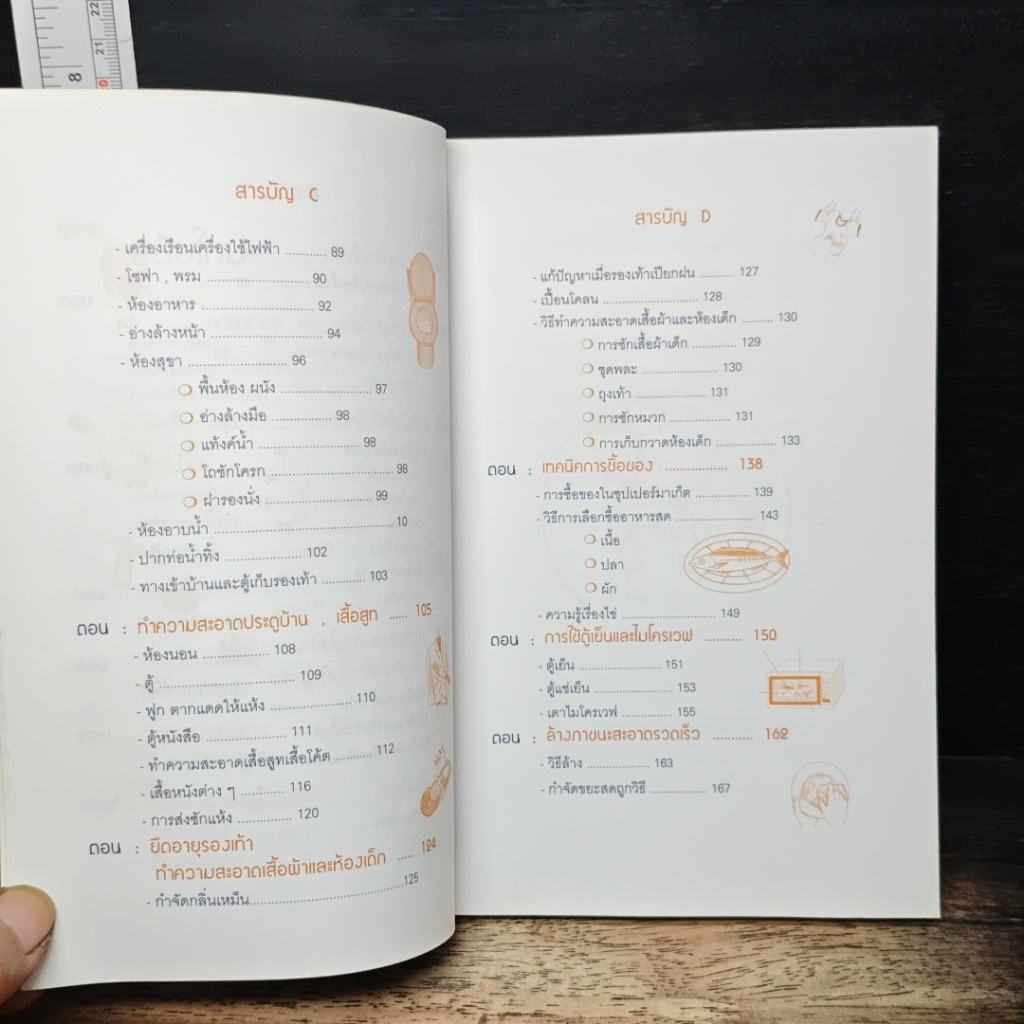 22
21
20
8
สารบัญ C
- เครื่องเรือนเครื่องใช้ไฟฟ้า ........... 89
- โซฟา , พรม ............................ 90
- ห้องอาหาร ............................... 92
- อ่างล้างหน้า ................................... 94
- ห้องสุขา ........................... 96
❍ พื้นห้อง ผนัง ......................... 97
❍ อ่างล้างมือ ................ 98
❍ แท้งค์น้ำ ............................ 98
❍ โถชักโครก .................................. 98
❍ ฝารองนั่ง .............................. 99
- ห้องอาบน้ำ .................................................... 10
- ปากท่อน้ำทิ้ง ..................... 102
- ทางเข้าบ้านและตู้เก็บรองเท้า ............ 103
ตอน : ทำความสะอาดประตูบ้าน , เสื้อสูท ..... 105
- ห้องนอน .................. 108
- ตู้ ..................................... 109
- ฟูก ตากแดดให้แห้ง ....................... 110
- ตู้หนังสือ .............................. 111
- ทำความสะอาดเสื้อสูทเสื้อโค้ต .......... 112
- เสื้อหนังต่าง ๆ ............ 116
- การส่งซักแห้ง ................ 120
ตอน : ยืดอายุรองเท้า
ทำความสะอาดเสื้อผ้าและห้องเด็ก ..... 124
- กำจัดกลิ่นเหม็น..........................................125
สารบัญ D
- แก้ปัญหาเมื่อรองเท้าเปียกฝน ........... 127
- เปื้อนโคลน ............................. 128
- วิธีทำความสะอาดเสื้อผ้าและห้องเด็ก .......... 130
❍ การซักเสื้อผ้าเด็ก .............. 129
❍ ชุดพละ ........................ 130
❍ ถุงเท้า ...................... 131
❍ การซักหมวก .................. 131
❍ การเก็บกวาดห้องเด็ก ................... 133
ตอน : เทคนิคการซื้อของ .................. 138
- การซื้อของในซุปเปอร์มาเก็ต ......................... 139
- วิธีการเลือกซื้ออาหารสด ......................... 143
❍ เนื้อ
❍ ปลา
❍ ผัก
- ความรู้เรื่องไข่ .............................. 149
ตอน : การใช้ตู้เย็นและไมโครเวฟ .......... 150
- ตู้เย็น ......................... 151
- ตู้แช่เย็น ......................... 153
- เตาไมโครเวฟ ......................... 155
ตอน : ล้างภาชนะสะอาดรวดเร็ว ........... 162
- วิธีล้าง ................... 163
- กำจัดขยะสดถูกวิธี .................. 167